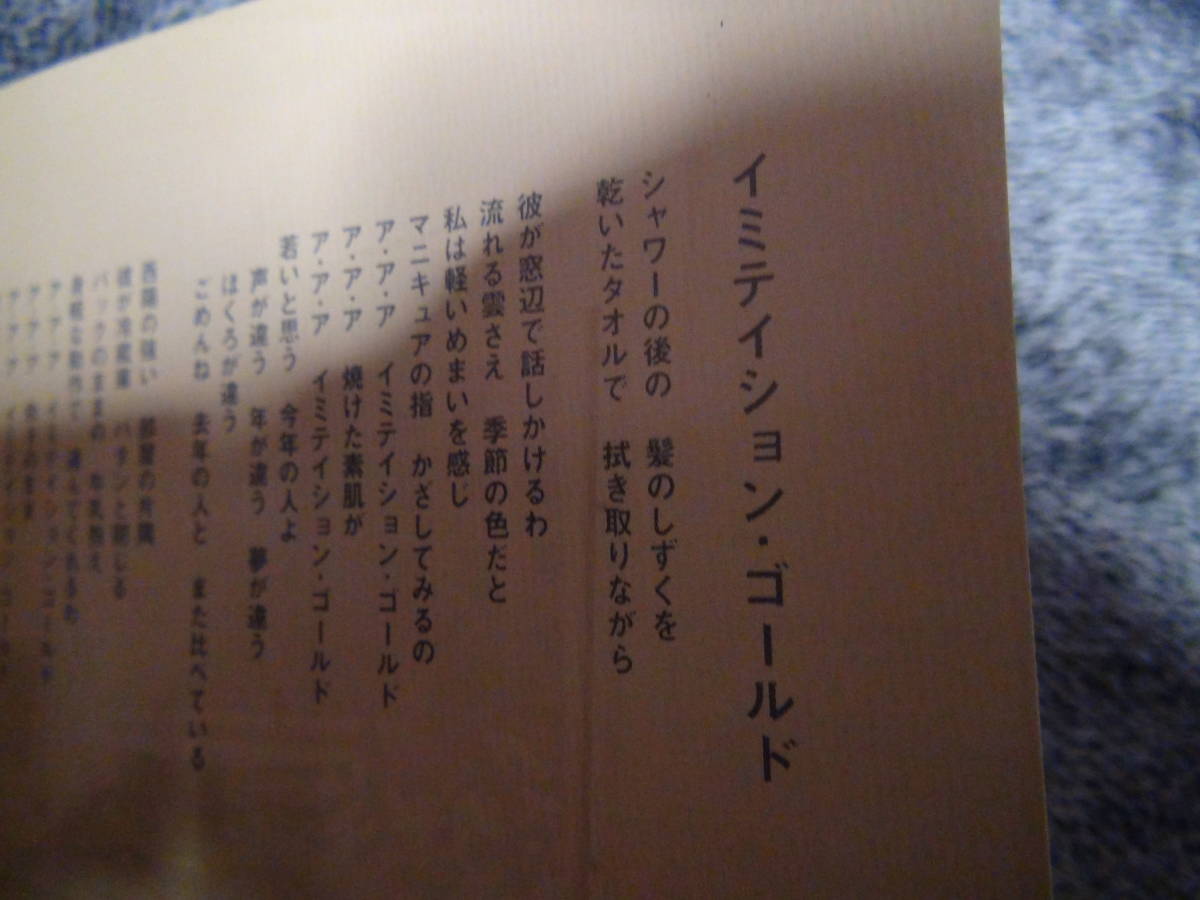 イミテイション・ゴールド
シャワーの後の 髪のしずくを
乾いたタオルで 拭き取りながら
彼が窓辺で話しかけるわ
流れる雲さえ 季節の色だと
私は軽いめまいを感じ
マニキュアの指 かざしてみるの
ア・ア・ア イミテイション・ゴールド
ア・ア・ア 焼けた素肌が
ア・ア・ア イミテイション・ゴールド
若いと思う 今年の人よ
声が違う 年が違う 夢が違う
ほくろが違う
ごめんね 去年の人と また比べている
西陽の強い 部屋の片隅
彼が冷蔵庫 バタンと閉じる
パックのままの 牛乳抱え
身軽な動作で 運んでくれるわ
ア・ア・ア イミテイション・ゴールド
ア・ア・ア
ア・ア・ア イミテイション・ゴールド